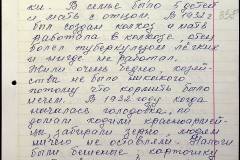 ки. В семье было 5 детей
и мать с отцом. В 1932 г
был создан колхоз а мать
работала в колхозе, отец
болел туберкулезом лёгких
и нигде не работал.
Жили очень бедно, хозяй-
ства не было никакого
потому что кормить было
нечем. В 1932 году когда
началась голодовка, по
домам ходили красноармей-
цы, забирали зерно, людям
ничего не оставляли. Налоги
были бешенные, картошку